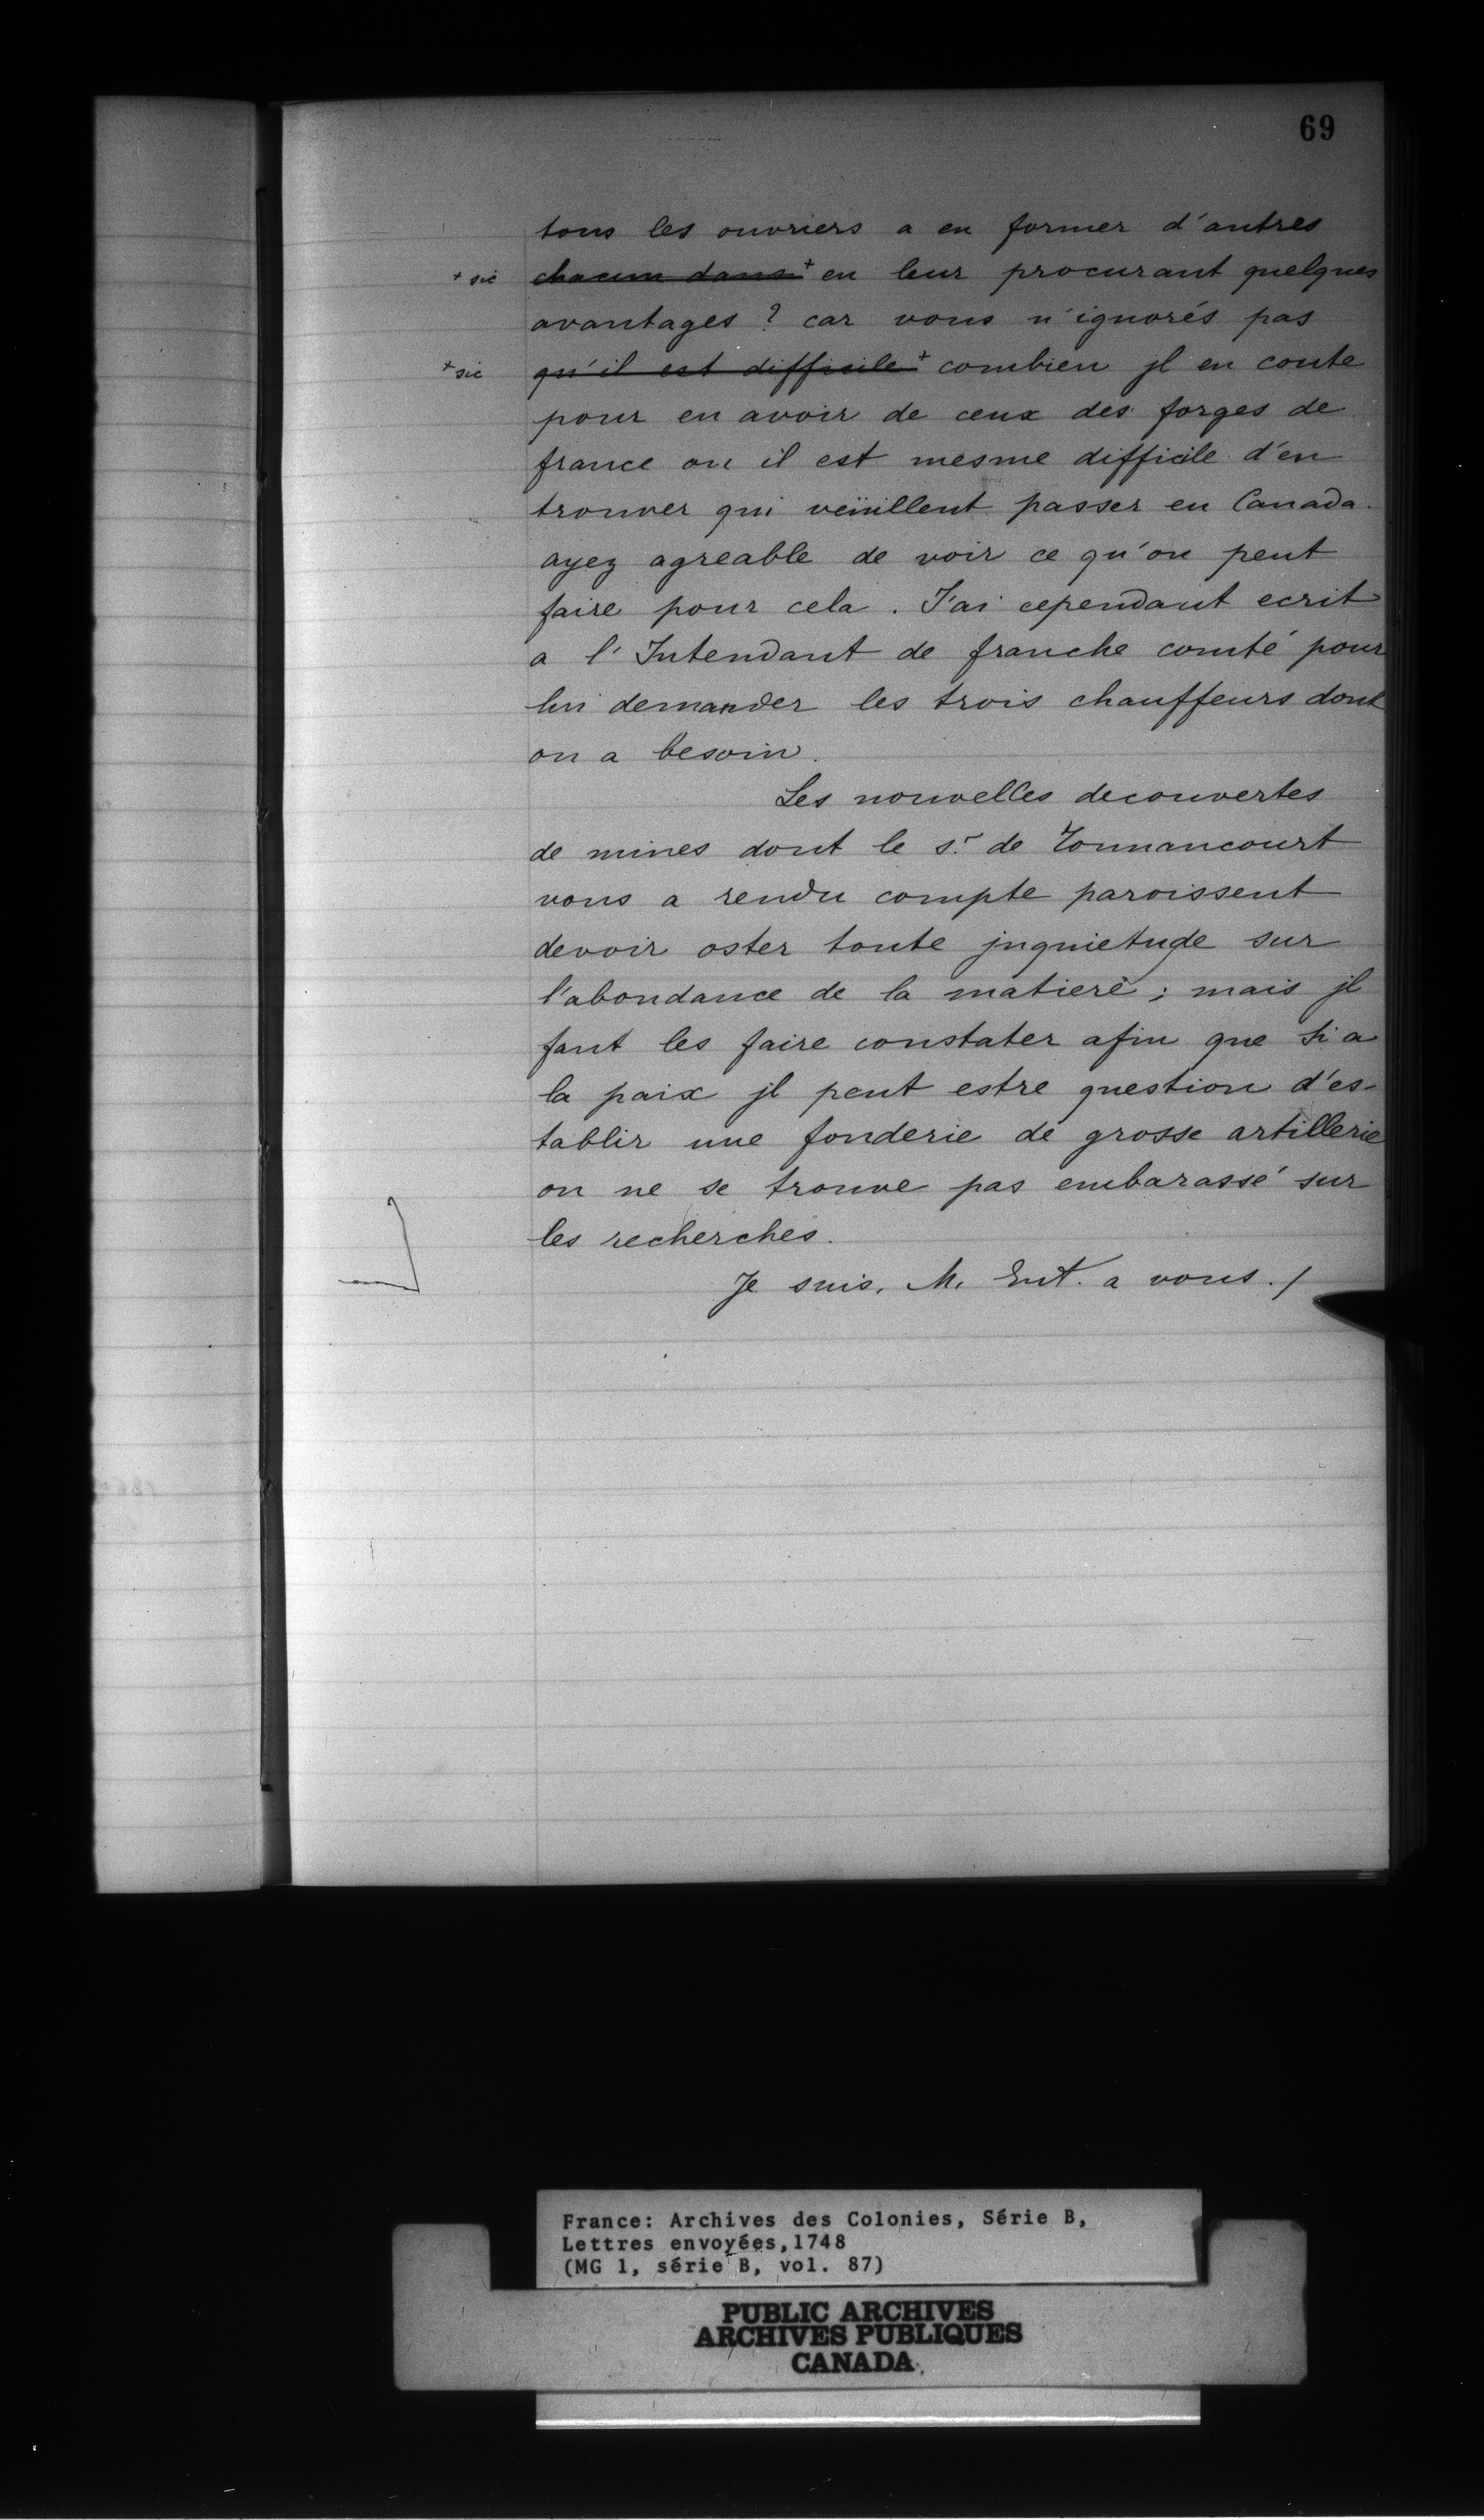 69
tous les ouvriers a en former d'autres
+ sic chacun dans + en leur procurant quelques
avantages ? car vous n'ignorés pas
+ sic qu'il est difficile + combien jl en coute
pour en avoir de ceux des forges de
france ou il est mesme difficile d'en
trouver qui veüillent passer en Canada.
ayez agreable de voir ce qu'on peut
faire pour cela. J'ai cependant ecrit
a l'Intendant de franche comté pour
lui demander les trois chauffeurs dont
on a besoin.
Les nouvelles decouvertes
de mines dont le s.r de Tonnancourt
vous a rendu compte paroissent
devoir oster toute jnquietude sur
l'abondance de la matierè ; mais jl
faut les faire constater afin que si a
la paix jl peut estre question d'es-
tablir une fonderie de grosse artillerie
on ne se trouve pas embarassé sur
les recherches.
Je suis, M. Ent. a vous. /
France: Archives des Colonies, Série B,
Lettres envoyées, 1748
(MG 1, série B, vol. 87)
PUBLIC ARCHIVES
ARCHIVES PUBLIQUES
CANADA